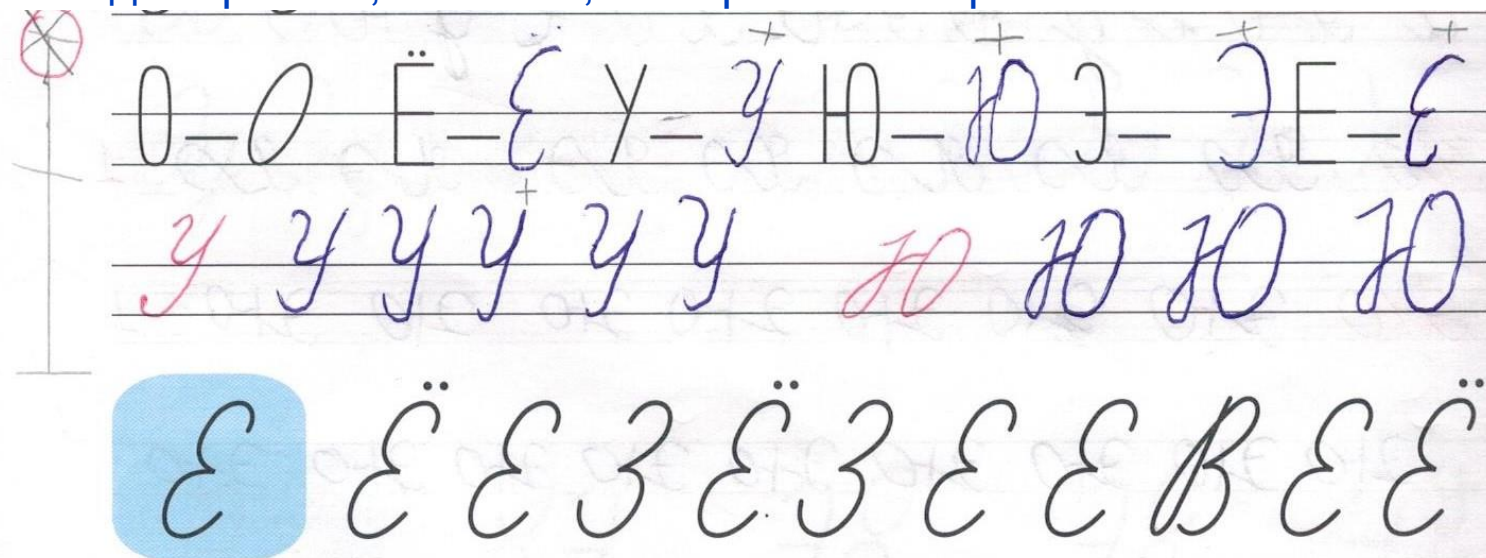 О—О Ё—Ё У—У Ю—Ю Э—Э Е—Е
У У У У У У Ю Ю Ю Ю
Е Ё Е З Ё З Е Е В Е Ё